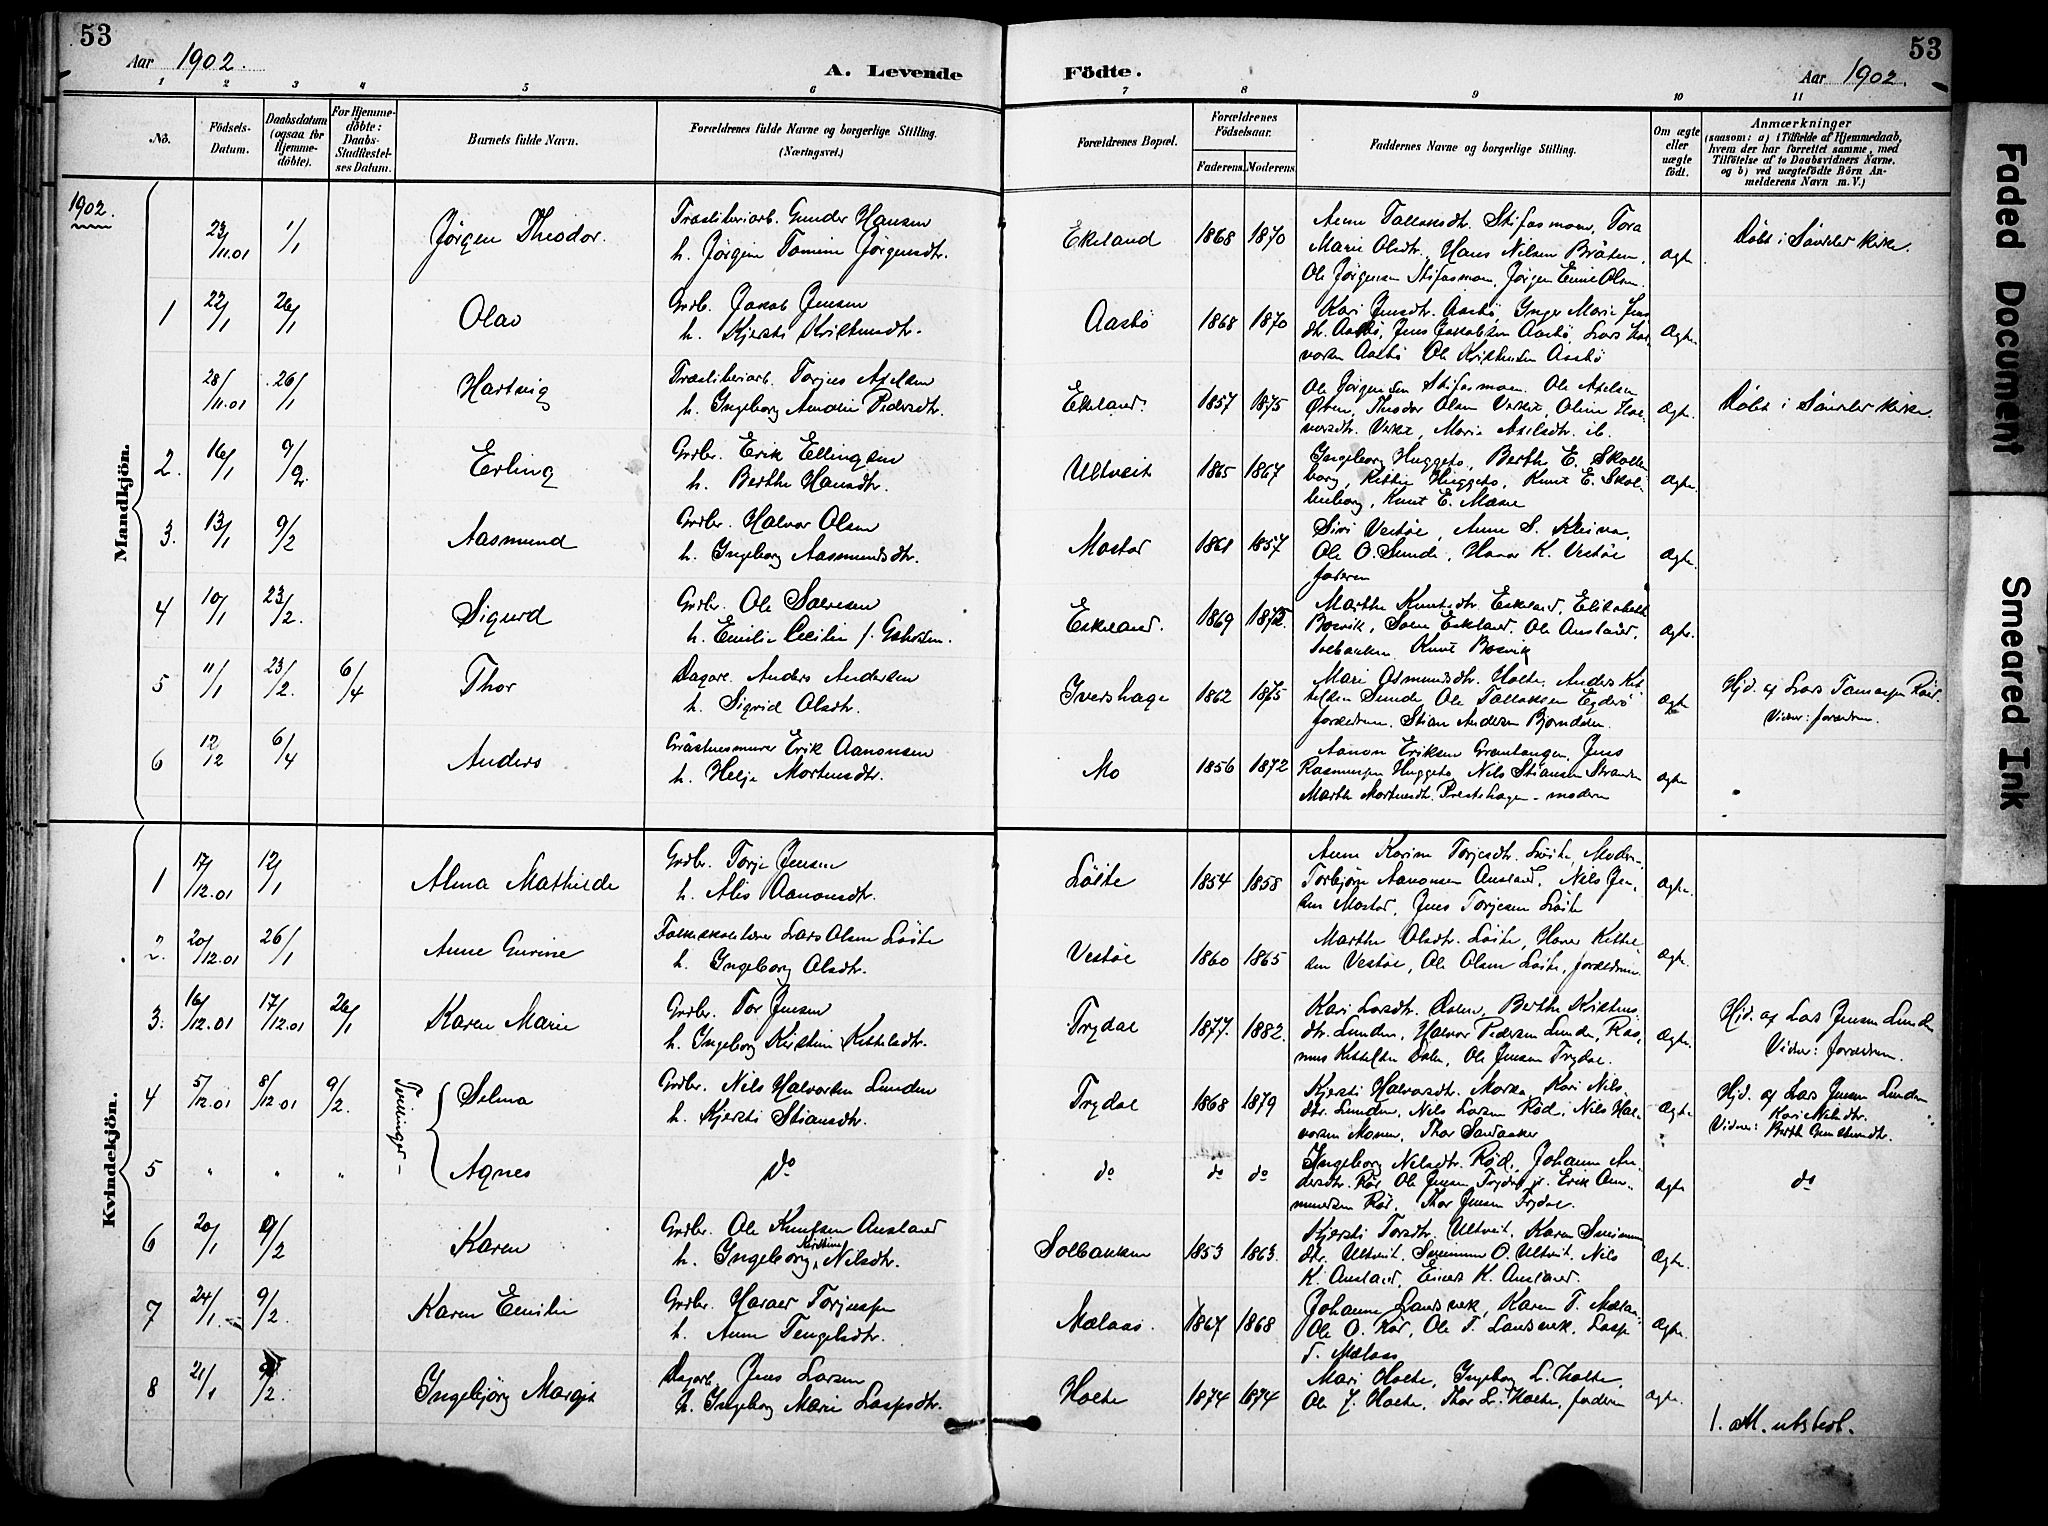 53
Aar 1902.
A. Levende
Födte.
Aar 1902.
53
1 2 3 4 5 6 7 8 9 10 11
No.
Födsels-Datum.
Daabsdatum (ogsaa for Hjemme-döbte).
For Hjemme-döbte: Daabs-Stadfestel-ses Datum.
Barnets fulde Navn.
Forældrenes fulde Navne og borgerlige Stilling. (Næringsvei.)
Forældrenes Bopæl.
Forældrenes Födselsaar.
Faderens. Moderens.
Faddernes Navne og borgerlige Stilling.
Om ægte eller uægte födt.
Anmærkninger
(saasom: a) i Tilfælde af Hjemmedaab, hvem der har forrettet samme, med Tilföielse af to Daabsvidners Navne, og b) ved uægtefödte Börn An-melderens Navn m. V.)
1902.
Mandkjön.
23/11.01 1/1 Jørgen Theodor. Træsliberiarb. Gunder Hansen
h. Jørgine Tomine Jørgensdtr. Ekeland 1868 1870
Marie Olsdtr., Hans Nilsen Bråten, ægte Døbt i Søndeler Kirke.
Ole Jørgensen Stifosmoen, Jørgen
1 22/1 26/1 Olav Grdbr. Jakob Jensen
h. Kjersti Kristensdtr. Aasbø 1868 1870 Kari Jensdtr. Aasbø, Inger Marie Jens
dtr. Aasbø, Jens Jakobsen Aasbø, Lars Hal
vorsen Aasbø Ole Kristensen Aasbø Ægte
28/11.01 26/1 Hartvig Træsliberiarb. Torjus Axelsen
h. Ingeborg Amalie Pedersdtr. Ekeland. 1857 1875 Ole Jørgensen Stifosmoen. Ole Axelsen
Theodor Olsen Verket, Oline Hal
vorsdtr. Verket, Marie Axelsdtr. ib. Ægte. Døbt i Søndeler Kirke.
2. 16/1 9/2 Erling Grdbr. Erik Ellingsen
h. Berthe Hansdtr. Ultveit 1865 1867 Ingeborg Huggeto, Berthe E. Skollen
borg, Kittil Huggeto, Knut E. Skol
lenborg, Knut E. Moen Ægte.
3. 13/1 9/2 Aasmund Grdbr. Halvor Olsen
h. Ingeborg Aasmundsdtr. Mostad 1861 1857 Siri Vestøl, Anne S.
Ole O. Sunde, Haaver K. Vestøl
faderen Ægte.
4 10/1 23/2. Sigurd Grdbr. Ole Salvesen
h. Emilie Cecilie f. Eskeland. 1869 1872. Marthe Knutsdtr. Eskeland, Elisabeth
Bosvik, Ole Ausland,
Solbakken Knut Bosvik Ægte.
5 11/1 23/2. 6/4 Thor Dagarb. Anders Andersen
h. Sigrid Olsdtr. Ivershage 1862 1875 Mari Osmundsdtr. Holte, Anders Kit
tilsen Sunde Ole Tallaksen Egderø
forældrene. Stian Andersen Bjorndalen. Ægte Hjd. af Lars Tomassen Röd.
Vidner: forældrene.
6 12/12 6/4 Anders Gråstensmurer Erik Aanonsen
h. Helje Mortensdtr. Mo 1856 1872 Aanon Eriksen Grantangen, Jens
Rasmussen Huggeto, Nils Stiansen Stranden
Marthe Mortensdtr. Prestehagen - moderen Ægte
Kvindekjön.
1 17/12.01 12/1 Alma Mathilde Grdbr. Torje Jensen
h. Alis Aanonsdtr. Löite 1854 1858 Anne Karine Torjesdtr. Löite, Moder-
Torbjørn Aanonsen Ausland, Nils Jen
sen Mostad, Jens Torjesen Löite Ægte.
2. 20/12.01 26/1 Anne Gurine Folkeskolelærer Lars Olsen Löite
h. Ingeborg Olsdtr. Vestøl 1860 1865 Marthe Olsdtr. Löite, Haaver Kittil
sen Vestøl, Ole Olsen Löite, forældrene. Ægte.
3. 16/12.01 17/12.01 26/1 Karen Marie Grdbr. Tor Jensen
h. Ingeborg Kirstine Kittelsdtr. Trydal 1877. 1882. Kari Larsdtr. Dalen, Berthe Kristens
dtr. Lunden, Halvor Pedersen Lunden, Ras
mus Kittelsen Dalen, Ole Jensen Trydal. Ægte. Hjd. af Lars Jensen Lunden
Vidner: forældrene.
4 5/12.01 8/12.01 9/2. Tvillinger - Selma Grdbr. Nils Halvorsen Lunden
h. Kjersti Stiansdtr. Trydal 1868 1879 Kjersti Halvorsdtr. Morka Kari Nils
dtr. Lunden, Nils Larsen Röd, Nils Hal
vorsen Moen, Thor Sandaaker Ægte Hjd. af Lars Jensen Lunden
Vidner: Kari Nilsdtr.
Berthe Gundersdtr.
5 " " " Agnes do do do do Ingeborg Nilsdtr. Röd, Johanne An
dersdtr. Röd Ole Jensen Trydal jr. Erik
Röd. Thor Jensen Trydal. Ægte do
6 20/1 9/2 Karen Grdbr. Ole Knutsen Ausland
h. Ingeborg Kirstine Nilsdtr. Solbakken 1853 1863. Kjersti Torsdtr. Ultveit. Karen Sveinung
dtr. Ultveit. Sveinung O. Ultveit. Nils
K. Ausland, Einert K. Ausland. Ægte.
7 24/1. 9/2. Karen Emilie Grdbr. Harald Torjussen
h. Anne Tengelsdtr. Mælaas. 1867 1868 Johanne Landsverk, Karen T. Mælaas
Ole O. Röd, Ole T. Landsverk,
Mælaas Ægte.
8 21/1 9/2. Ingebjörg Margit Dagarb. Jens Larsen
h. Ingeborg Marie Holte 1874 1874 Mari Holte, Ingeborg L. Holte,
Ole J. Holte, Thor L. Holte, faderen Ægte.
1. utsted.
Faded Document
Smeared Ink